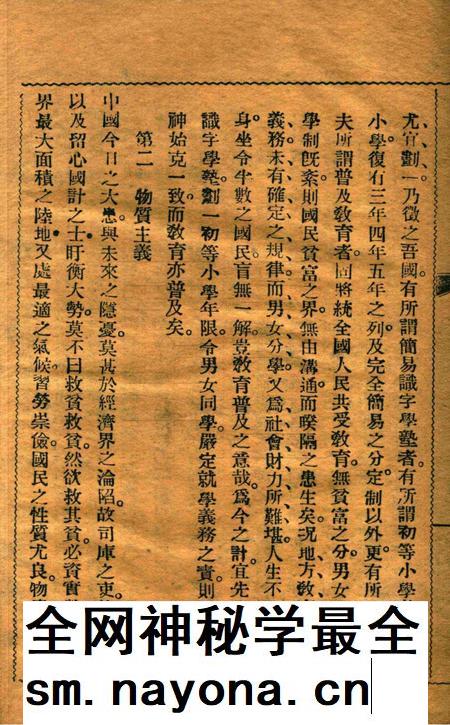 尤宜劃一乃徵之吾國。有所謂簡易識字學塾者。有所謂初等小學
小學。復有三年四年五年之列。及完全簡易之分。定制以外。更有所
夫所謂普及教育者。固將統全國人民共受教育。無貧富之分。男女
學制既紊。則國民貧富之界。無由溝通。而暌隔之患生矣。況地方教
義務。未有確定之規律。而男女分學。又爲社會財力所難堪。人生不
身。坐令半數之國民。盲無一解。豈教育普及之意哉。爲今之計。宜先
識字學塾。劃一初等小學年限。令男女同學。嚴定就學義務之責。則
神始克一致。而教育亦普及矣。
第二 物質主義
中國今日之大患。與未來之隱憂。莫甚於經濟界之淪陷。故司庫之吏
以及留心國計之士。盱衡大勢。莫不曰救貧救貧。然欲救其貧。必資實
界最大面積之陸地。又處最適之氣候。習勞崇儉。國民之性質尤良。物
全网神秘学最全
sm.nayona.cn